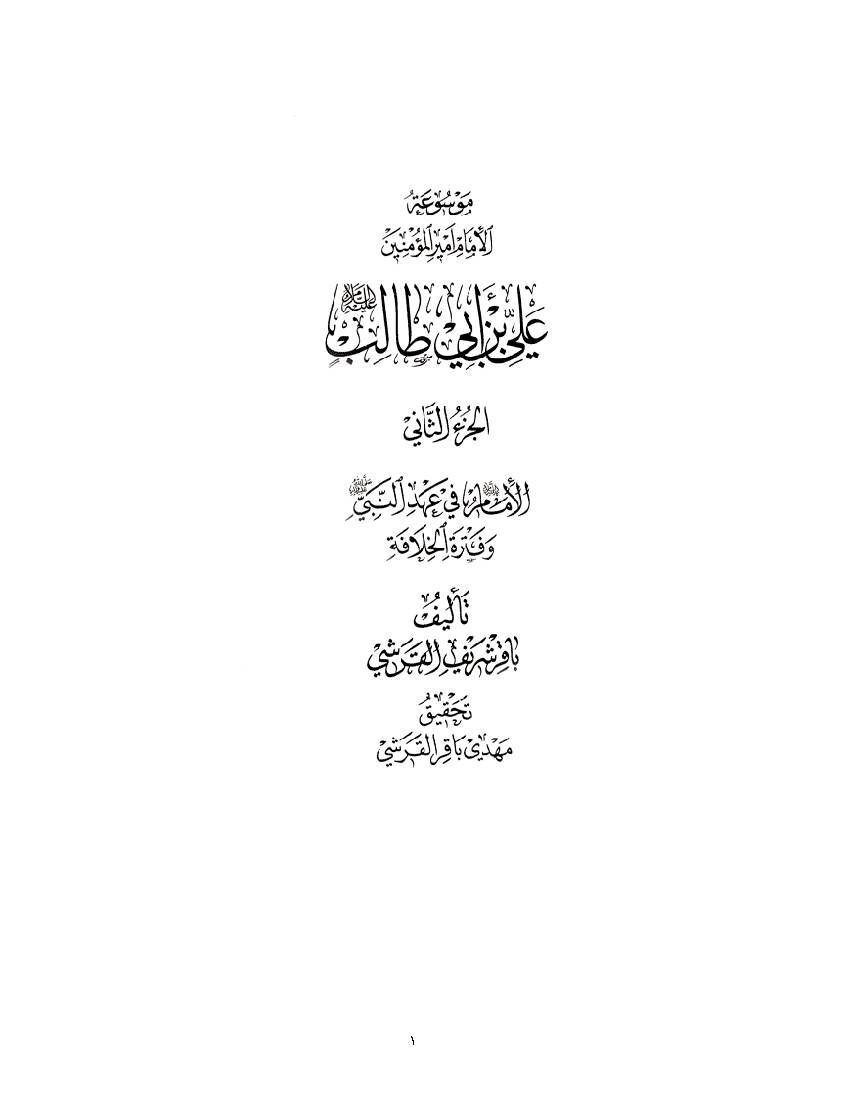 مَوْسُوعَةُ
الْإِمَامِ أَمِيرِ الْمُؤْمِنِينَ
عَلِيِّ بْنِ أَبِي طَالِبٍ عَلَيْهِ السَّلَامُ
الجُزْءُ الثَّانِي
الْإِمَامُ فِي عَهْدِ النَّبِيِّ
وَفَتْرَةِ الْخِلَافَةِ
تَأْلِيفُ
بَاقِر شَرِيف الْقَرَشِي
تَحْقِيقُ
مَهْدِي بَاقِر الْقَرَشِي
١